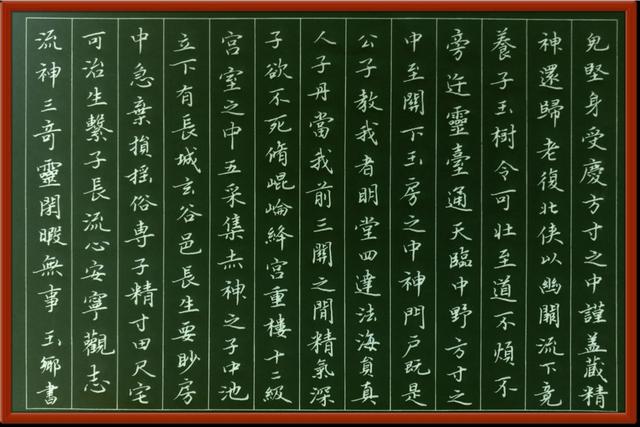 堅身受慶方寸之中謹蓋藏精
神還歸老復壯俠以幽闕流下竟
養子玉樹令可壯至道不煩不
旁迕靈臺通天臨中野方寸之
中至關下玉房之中神門戶既是
公子教我者明堂四達法海員真
人子丹當我前三關之間精氣深
子欲不死脩崐崘絳宮重樓十二級
宮室之中五采集赤神之子中池
立下有長城玄谷邑長生要眇房
中急棄捐搖俗専子精寸田尺宅
可治生繫子長流心安寧觀志
流神三奇靈閑暇無事 玉鄉書